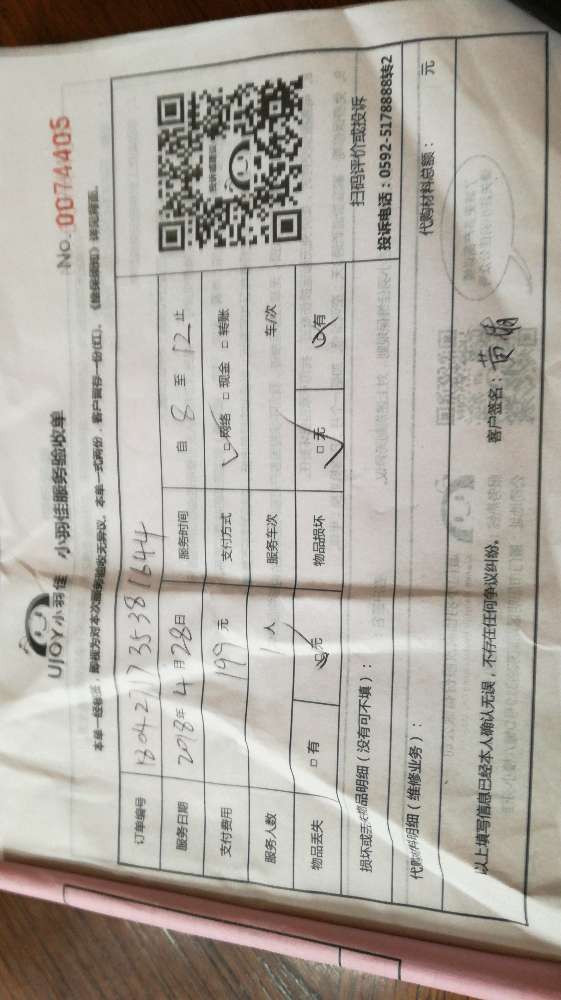 UJOY小羽佳 小羽佳服务验收单
No. 0074405
本单一经签署,即视为对本次服务验收无异议。本单一式两份,客户留存一份(红)。
订单编号 1804271735381644
服务日期 2018年4月28日 服务时间 自 8 至 12 止
支付费用 199 元 支付方式 □网络 □现金 □转账
服务人数 1 人 服务车次 车/次
物品丢失 □有 □无 物品损坏 □无 □有
扫码评价或投诉
投诉电话:0592-5178888转2
损坏或丢失物品明细(没有可不填):
代购材料明细(维修业务): 代购材料总额: 元
以上填写信息已经本人确认无误,不存在任何争议纠纷。 客户签名: